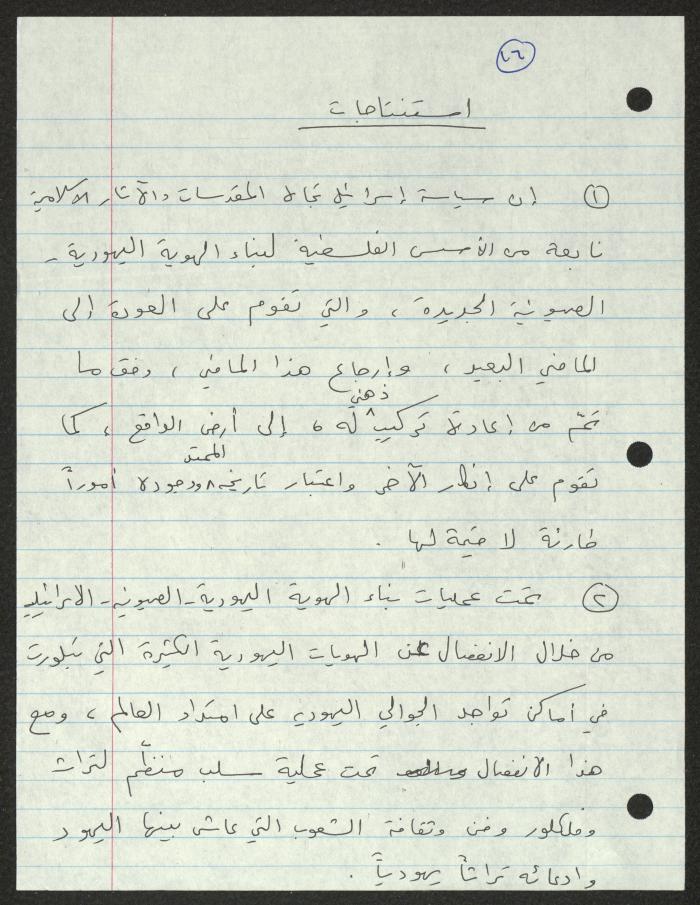 ٤٦
استنتاجات
١ إن سياسة إسرائيل تجاه المقدسات والآثار الاسلامية
نابعة من الأسس الفلسفية لبناء الهوية اليهودية -
الصهيونية الجديدة ، والتي تقوم على العودة إلى
الماضي البعيد ، وإرجاع هذا الماضي ، وفق ما
ذهني
تمّ من إعادة تركيب له ، إلى أرض الواقع ، كما
الممتد
تقوم على إنكار الآخر واعتبار تاريخه ووجوده أموراً
طارئة لا قيمة لها .
٢ تمت عمليات بناء الهوية اليهودية - الصهيونية - الاسرائيلية
من خلال الانفصال عن الهويات اليهودية الكثيرة التي تبلورت
في أماكن تواجد الجوالي اليهودية على امتداد العالم ، ومع
هذا الانفصال تمت عملية سلب منظّم لتراث
وفلكلور وفن وثقافة الشعوب التي عاش بينها اليهود
وادعائه تراثاً يهودياً .